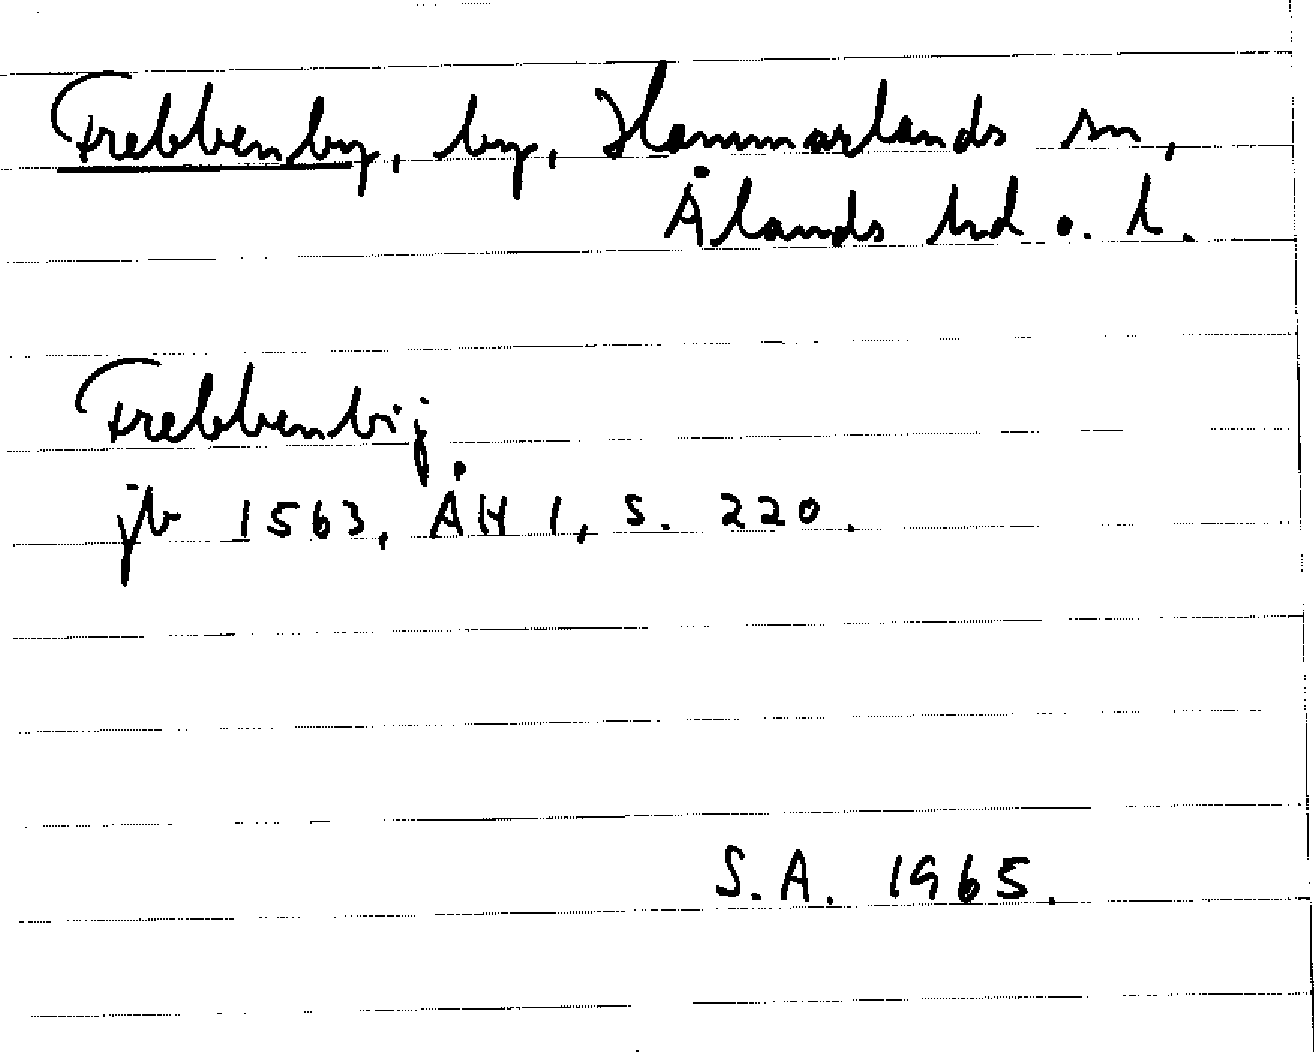 Frebbenby, by, Hammarlands sn,
Ålands hd o. l.
Frebbenbij
jb 1563, ÅH 1, s. 220.
S.A. 1965.